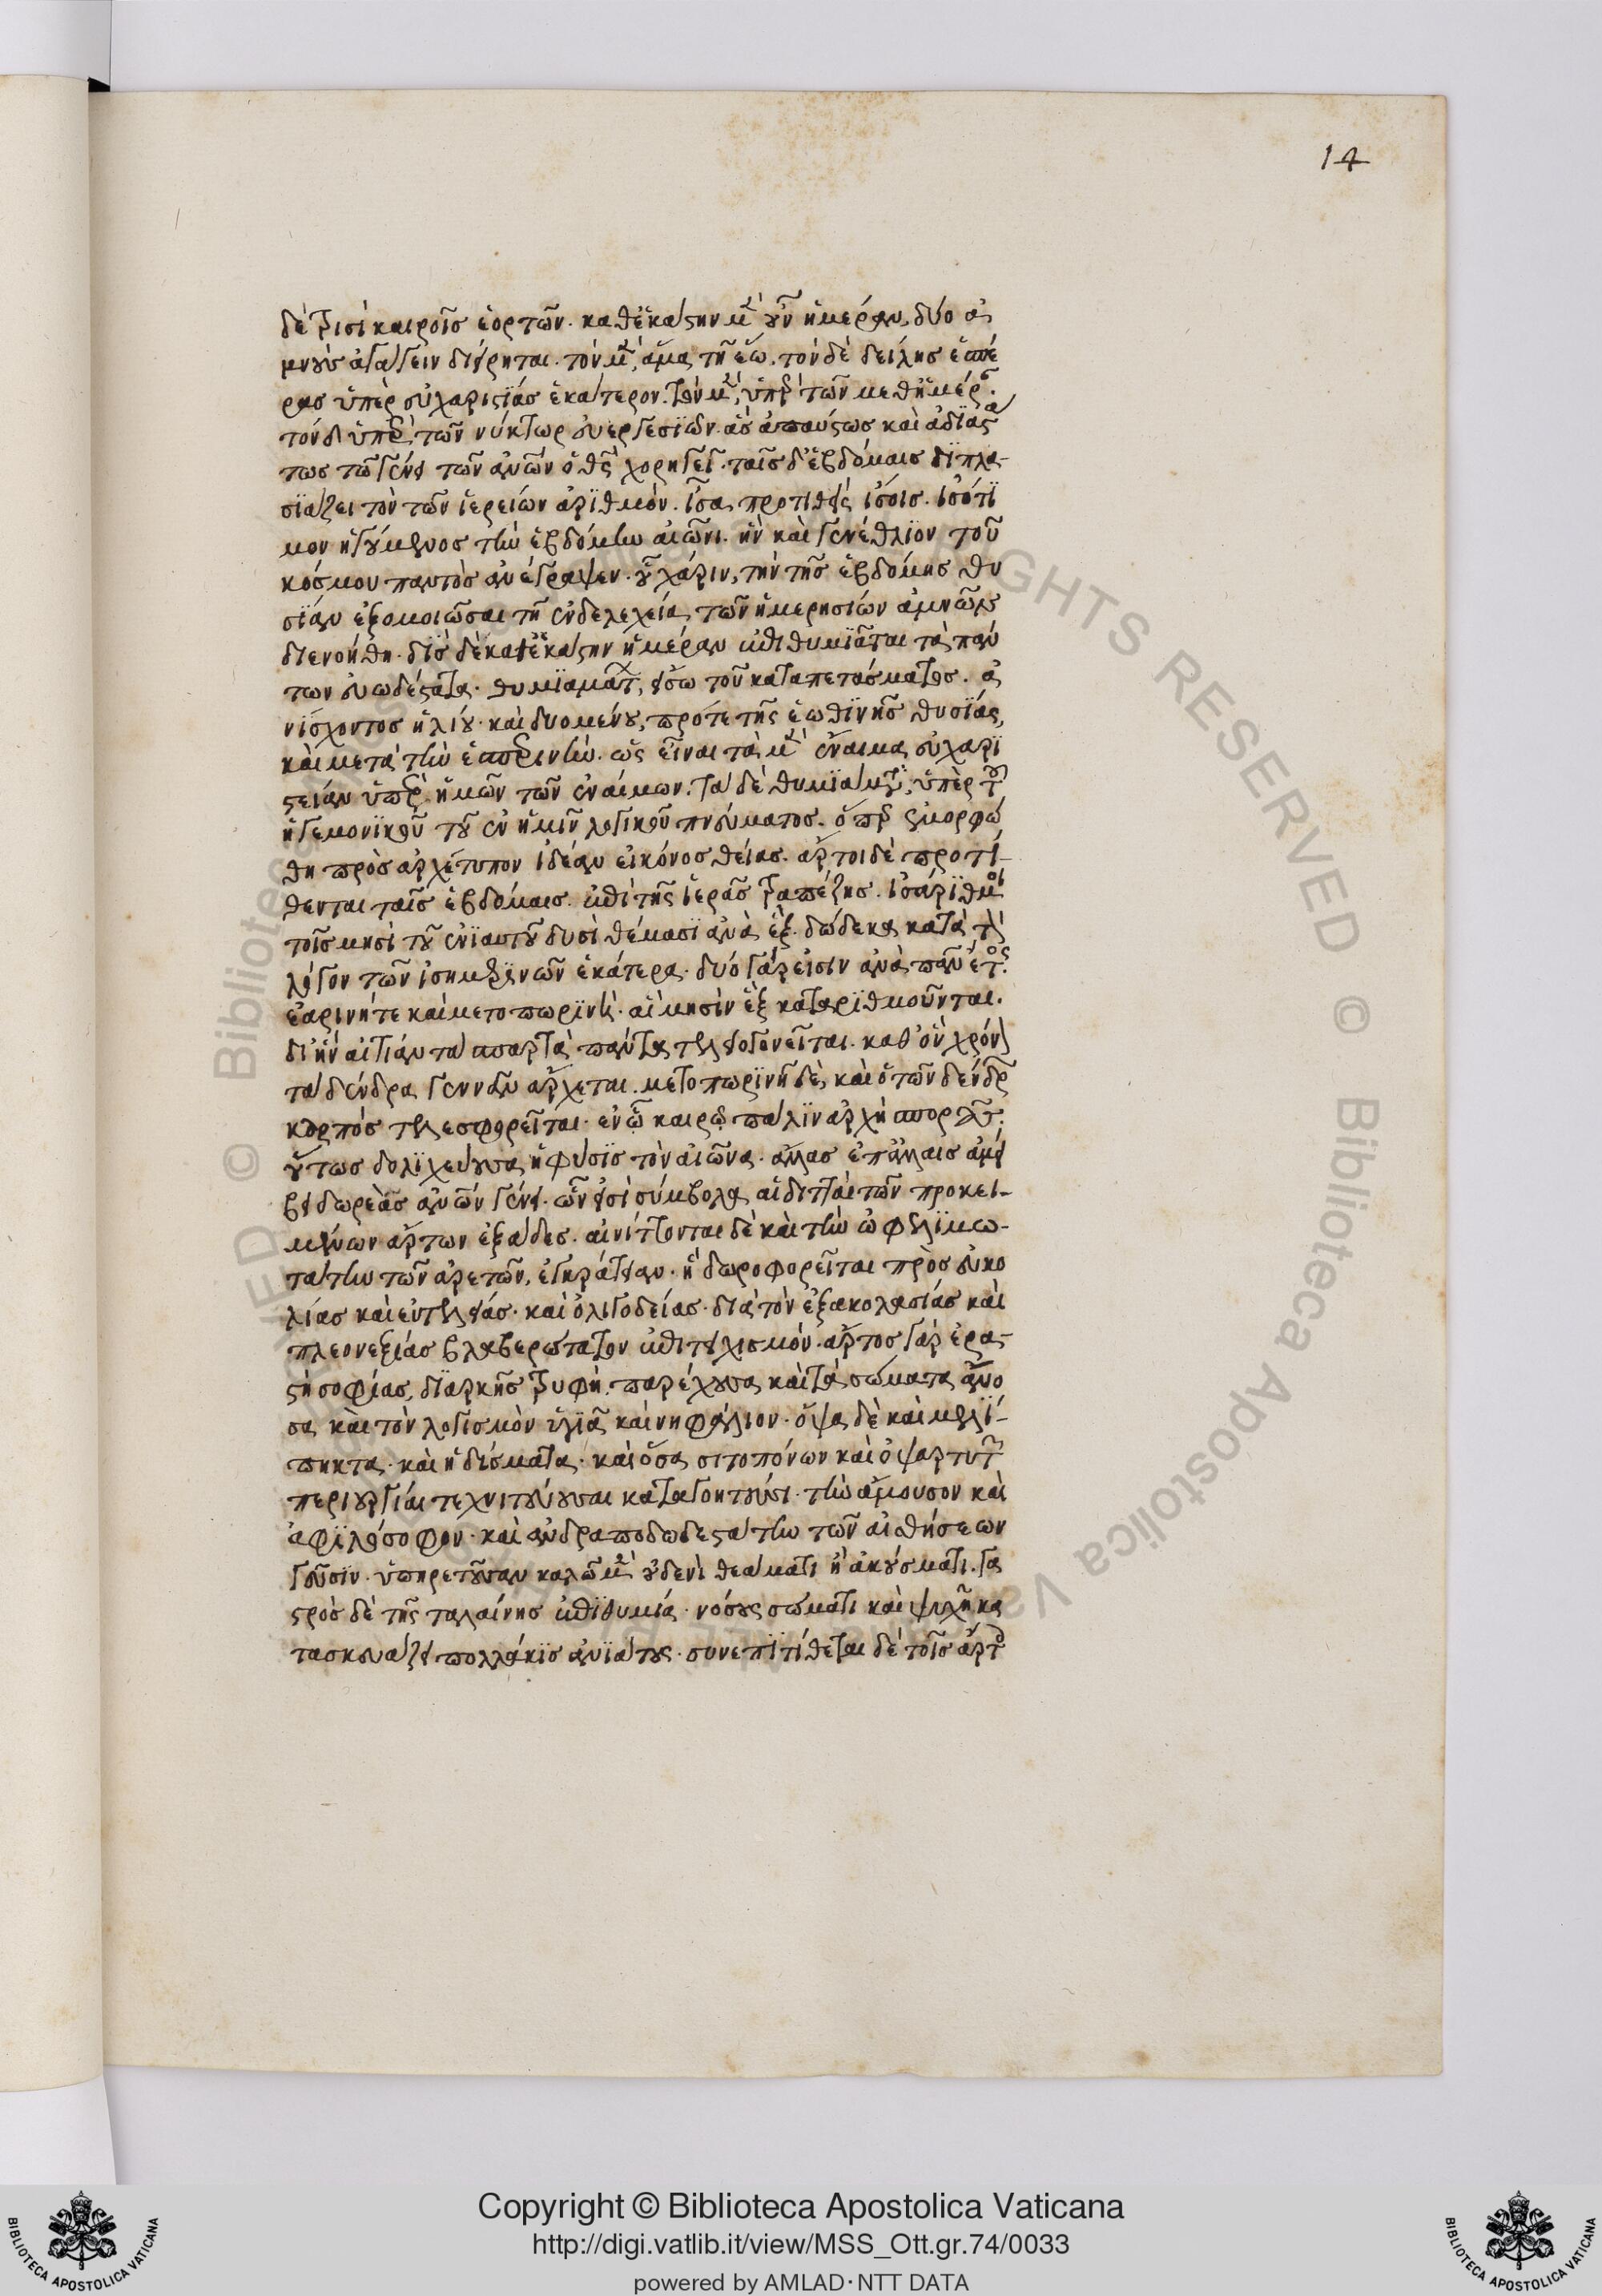 14
δὲ τρισὶ καιροῖς ἑορτῶν. καθ' ἑκάστην μὲν οὖν ἡμέραν, δύο ἀ
μνοὺς ἀνάγειν διείρηται. τὸν μὲν, ἅμα τῇ ἕῳ. τὸν δὲ δείλης ἑσπέ
ρας ὑπὲρ εὐχαριστίας ἑκάτερον. τὸν μὲν, ὑπὲρ τῶν μεθ' ἡμέραν.
τὸν δ' ὑπὲρ τῶν νύκτωρ εὐεργεσϊῶν. ἃς ἀπαύστως καὶ ἀδϊαστά
τως τῶ γένει τῶν ἀνων ὁ θς χορηγεῖ. ταῖς δ' ἑβδόμαις διπλα-
σϊάζει τὸν τῶν ἱερείων ἀρϊθμὸν. ἴσα προτιθεὶς ἴσοις. ἰσότϊ
μον ἡγούμενος τὴν ἑβδόμην αἰῶνι. ἣν καὶ γενέθλϊον τοῦ
κόσμου παντὸς ἀνέγραψεν. οὗ χάριν, τὴν τῆς ἑβδόμης θυ
σϊαν ἐξομοιῶσαι τῇ ἐνδελεχείᾳ τῶν ἡμερησίων ἀμνῶν
διενοήθη. δϊς δὲ καθ' ἑκάστην ἡμέραν ἐπιθυμϊᾶται τὰ πάν
των εὐωδέστατα θυμϊαμάτων, εἴσω τοῦ καταπετάσματος. ἀ
νίσχοντος ἡλίου. καὶ δυομένου, πρό τε τῆς ἑωθϊνῆς θυσϊας,
καὶ μετὰ τὴν ἑσπερινὴν. ὡς εἶναι τὰ μὲν ἔναιμα εὐχαρϊ
στείαν ὑπὲρ ἡμῶν τῶν ἐναίμων. τὰ δὲ θυμϊάματα, ὑπὲρ τοῦ
ἡγεμονϊκοῦ τοῦ ἐν ἡμῖν λογικοῦ πνεύματος. ὅπερ ἐμορφώ
θη πρὸς ἀρχέτυπον ἰδέαν εἰκόνος θείας. ἄρτοι δὲ προτί-
θενται ταῖς ἑβδόμαις ἐπὶ τῆς ἱερᾶς τραπέζης. ἰσάρϊθμοι
τοῖς μησὶ τοῦ ἐνϊαυτοῦ δυσὶ θέμασϊ ἀνὰ ἓξ. δώδεκα κατὰ τὸν
λόγον τῶν ἰσημερϊνῶν ἑκάτερα. δύο γάρ εἰσιν ἀνὰ πᾶν ἔτος.
ἐαρινή τε καὶ μετοπωρϊνὴ. αἳ μησὶν ἓξ καταρϊθμοῦνται.
δι' ἣν αἰτίαν τὰ σπαρτὰ πάντα τελειογονεῖται. καθ' ὃν χρόνον
τὰ δένδρα γεννᾶν ἄρχεται. μετοπωρϊνῇ δὲ, καὶ ὁ τῶν δένδρων
καρπός τελεσφορεῖται. ἐν ᾧ καιρῷ πάλϊν ἀρχὴ σπορᾶς.
οὕτως δολϊχεύουσα ἡ φύσϊς τὸν αἰῶνα. ἄλλας ἐπ' ἄλλαις ἀμεί
βει δωρεὰς ἀνων γένει. ὧν εἰσὶ σύμβολα αἱ διτταὶ τῶν προκει-
μένων ἄρτων ἑξάδες. αἰνίττονται δὲ καὶ τὴν ὠφελϊμω-
τάτην τῶν ἀρετῶν, ἐγκράτειαν. ἣ δωροφορεῖται πρὸς εὐκο
λίας καὶ εὐτελείας. καὶ ὀλιγοδείας. διὰ τὸν ἐξ ἀκολασίας καὶ
πλεονεξίας βλαβερώτατον ἐπιτειχισμὸν. ἄρτος γὰρ ἐρα-
στῇ σοφίας, δϊαρκὴς τρυφὴ. παρέχουσα καὶ τὰ σώματα ἄνο
σα καὶ τὸν λογισμὸν ὑγϊᾶ καὶ νηφάλιον. ὄψα δὲ καὶ μελί-
πηκτα. καὶ ἡδύσματα. καὶ ὅσα σιτοπόνων καὶ ὀψαρτυτῶν
περιουργίαι τεχνιτεύουσαι καταγοητεύουσι. τὴν ἄμουσον καὶ
ἀφϊλόσοφον. καὶ ἀνδραποδωδεστάτην τῶν αἰσθήσεων
γεῦσϊν. ὑπηρετοῦσαν καλῶ μὲν οὐδενὶ θεάματι ἢ ἀκούσματι. γα
στρὸς δὲ τῆς ταλαίνης ἐπϊθυμία. νόσους σώματι καὶ ψυχῇ κα
τασκευάζει πολλάκϊς ἀνϊάτους. συνεπϊτίθεται δὲ τοῖς ἄρτοις
© Biblioteca Apostolica Vaticana
RIGHTS RESERVED
Copyright © Biblioteca Apostolica Vaticana
http://digi.vatlib.it/view/MSS_Ott.gr.74/0033
powered by AMLAD·NTT DATA
BIBLIOTECA APOSTOLICA VATICANA
BIBLIOTECA APOSTOLICA VATICANA